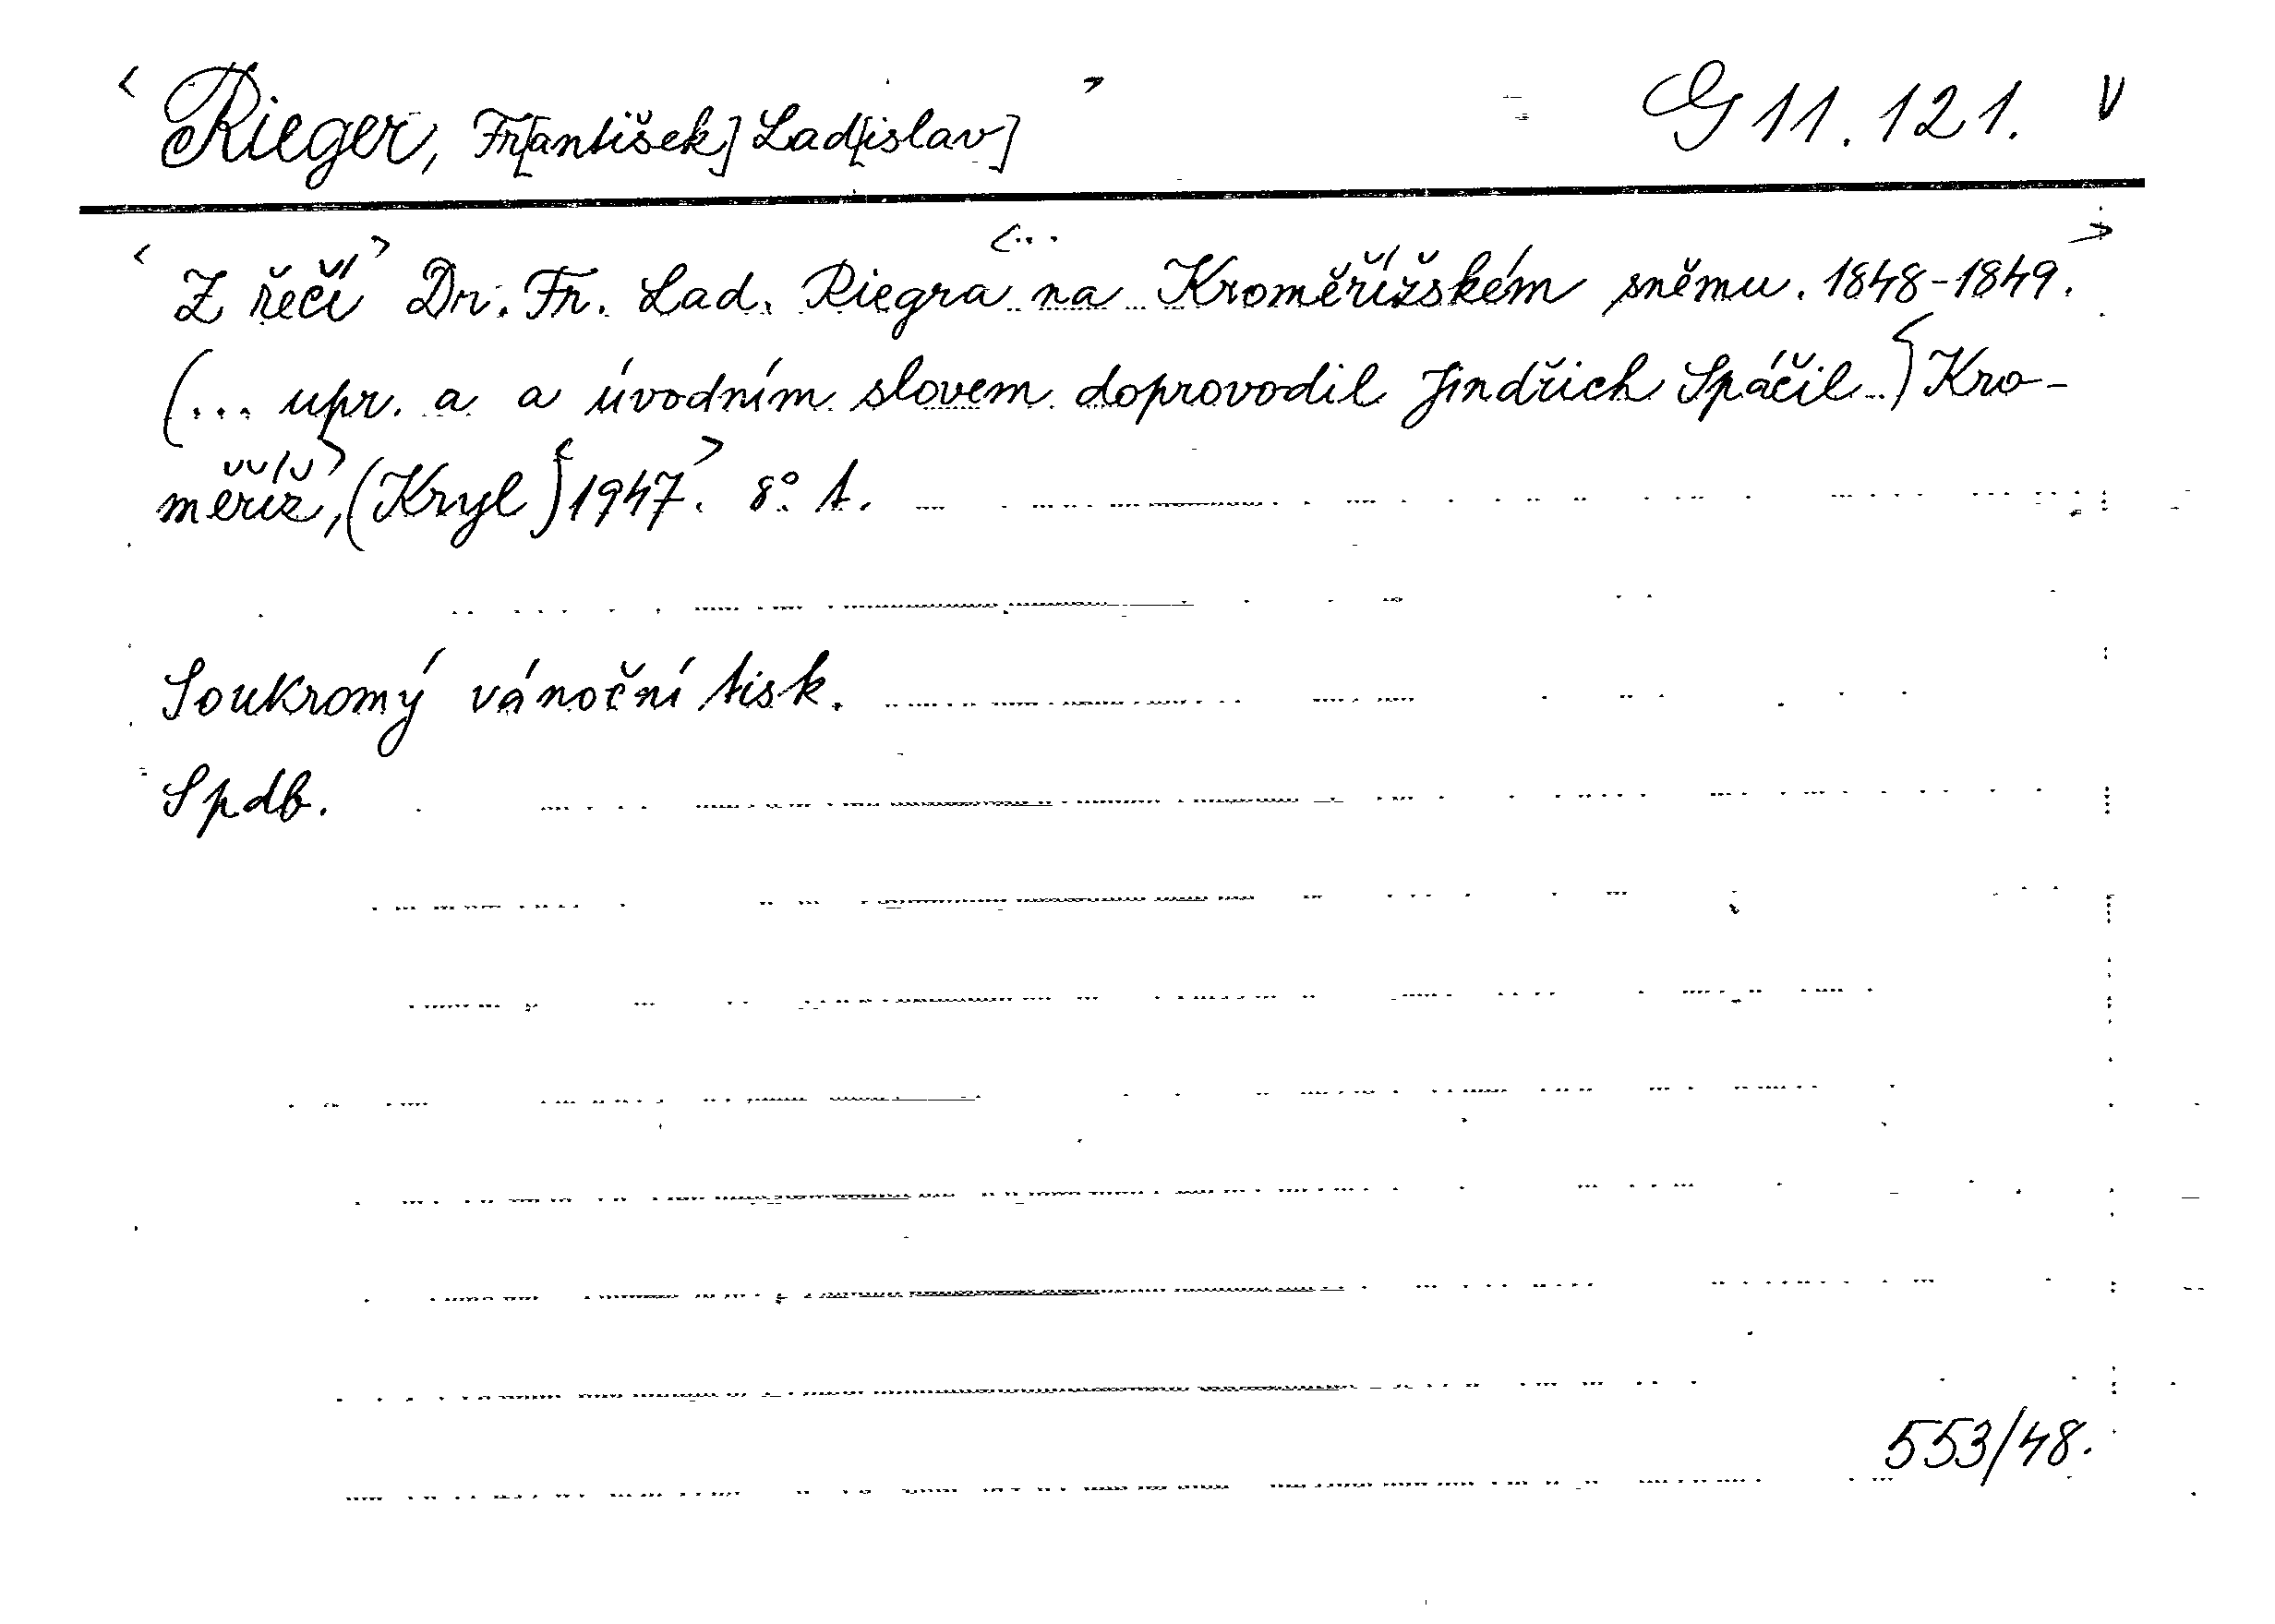 <Rieger, Fr[antišek] Lad[islav]> G 11.121. V
<Z řečí> Dr. Fr. Lad. Riegra <... na Kroměřížském sněmu. 1848-1849.>
(... upr. a a úvodním slovem doprovodil Jindřich Spáčil...) <Kro-
měříž,> (Kryl) <1947>. 8° 1.
Soukromý vánoční tisk.
Spdb.
553/48.